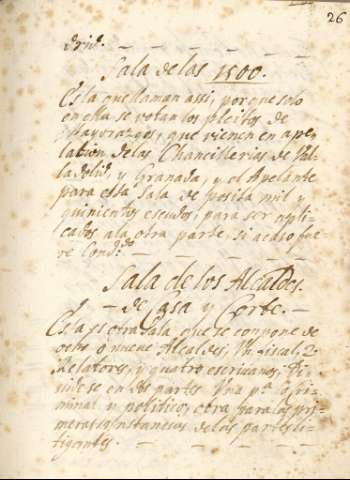 26
drid. — — — —
Sala de las 1500.
Esta que llaman assi, porque solo
en ella se votan los pleitos de
Mayorazgos, que vienen en ape
lacion de las Chancillerias de Val-
ladolid, y Granada, y el Apelante
para esta Sala deposita mil y
quinientos escudos, para ser apli-
cados ala otra parte, si acaso fue
re Conddo. — — — —
Sala de los Alcaldes
— de Casa y Corte. —
Esta es otra Sala que se conpone de
ocho o nueve Alcaldes, Un fiscal, 2
Relatores, y quatro escrivanos, Di
videse en dos partes Una pa. lo Cri-
minal y politico, otra para las pri-
meras instancias de las partes li-
tigantes. — — — —